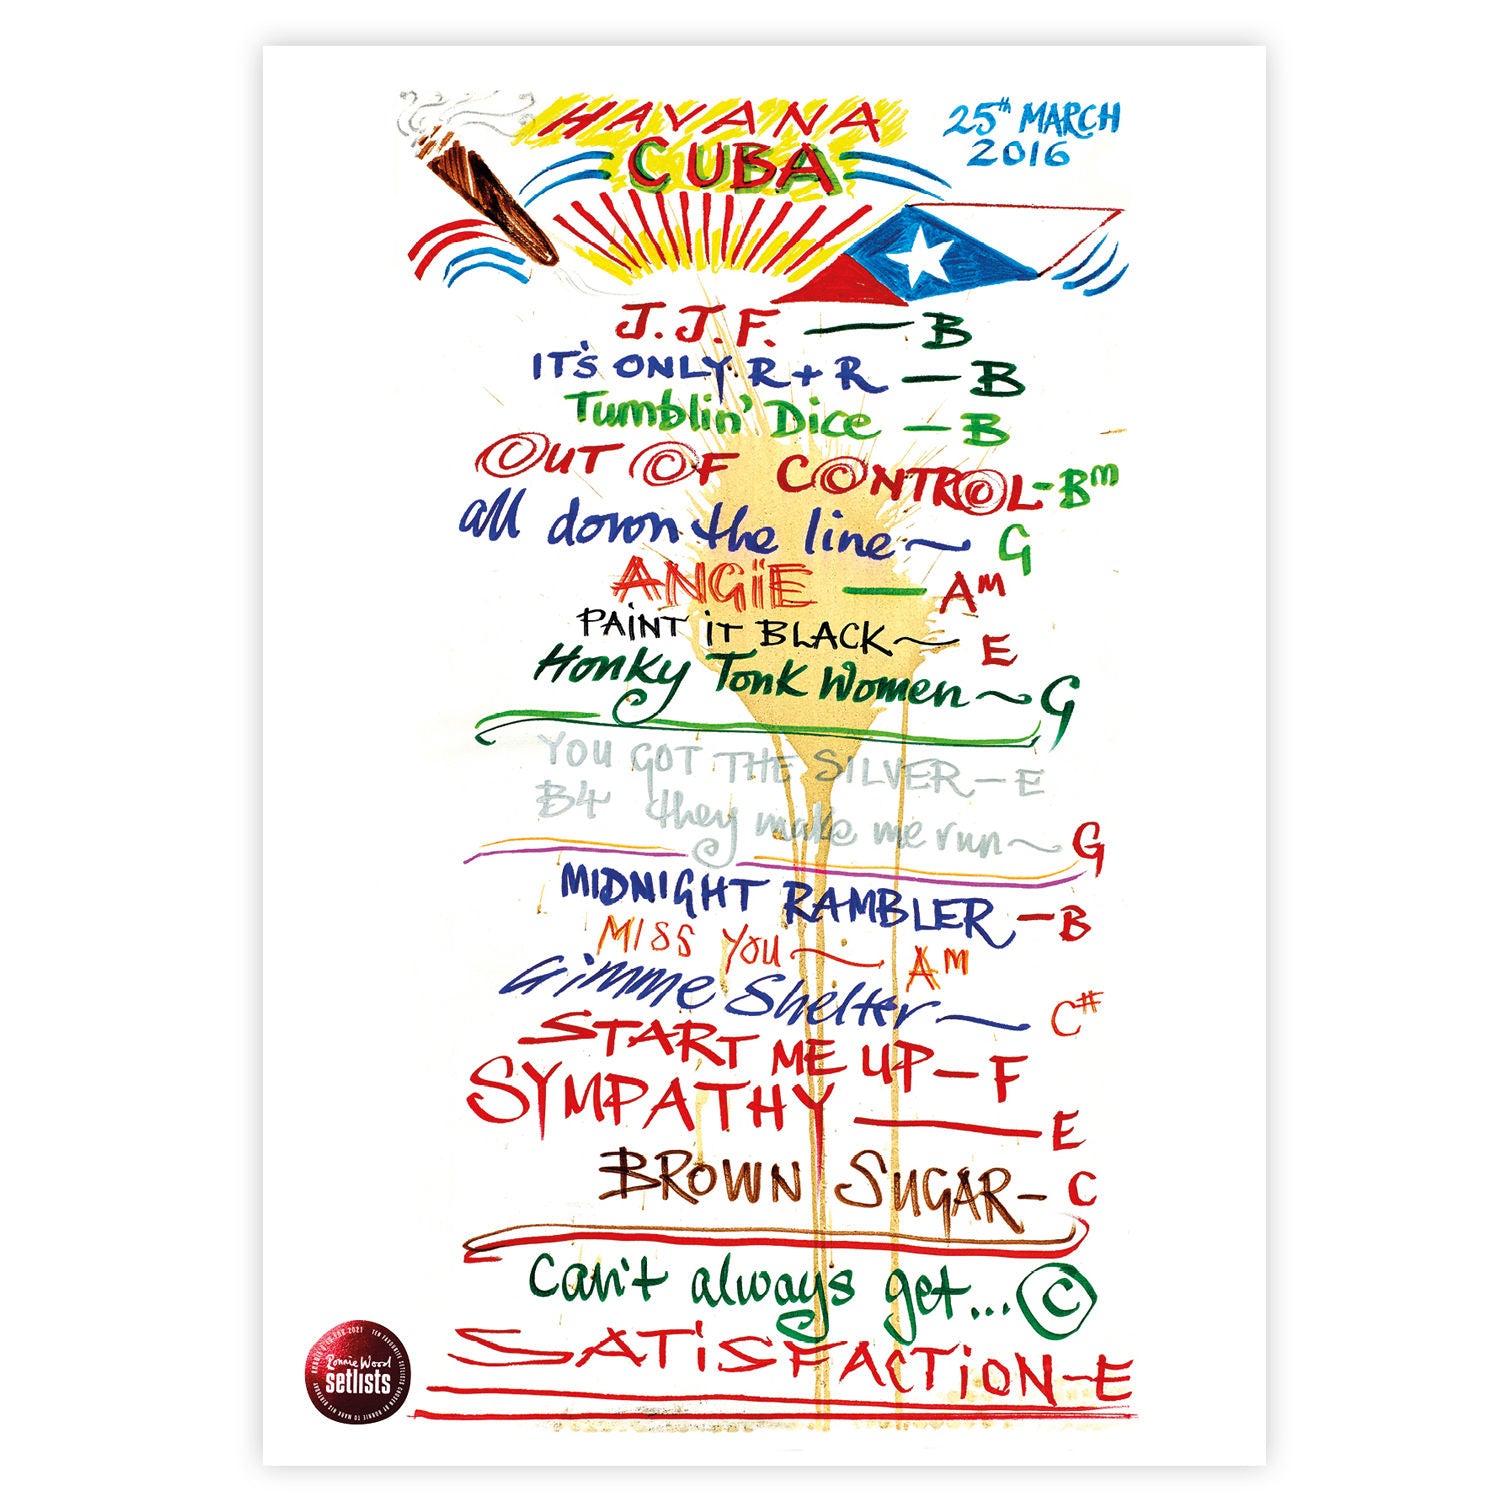 HAVANA
CUBA
25th MARCH
2016
J.J.F. — B
IT'S ONLY R + R — B
Tumblin' Dice — B
OUT OF CONTROL - Bm
all down the line ~ G
ANGIE — AM
PAINT iT BLACK ~ E
Honky Tonk Women ~ G
YOU GOT THE SILVER — E
B4 they make me run ~ G
MIDNIGHT RAMBLER — B
MISS YOU ~ AM
Gimme Shelter ~ C#
START ME UP — F
SYMPATHY — E
BROWN SUGAR - C
Can't always get... C
SATiSFACTiON - E
Ronnie Wood
setlists